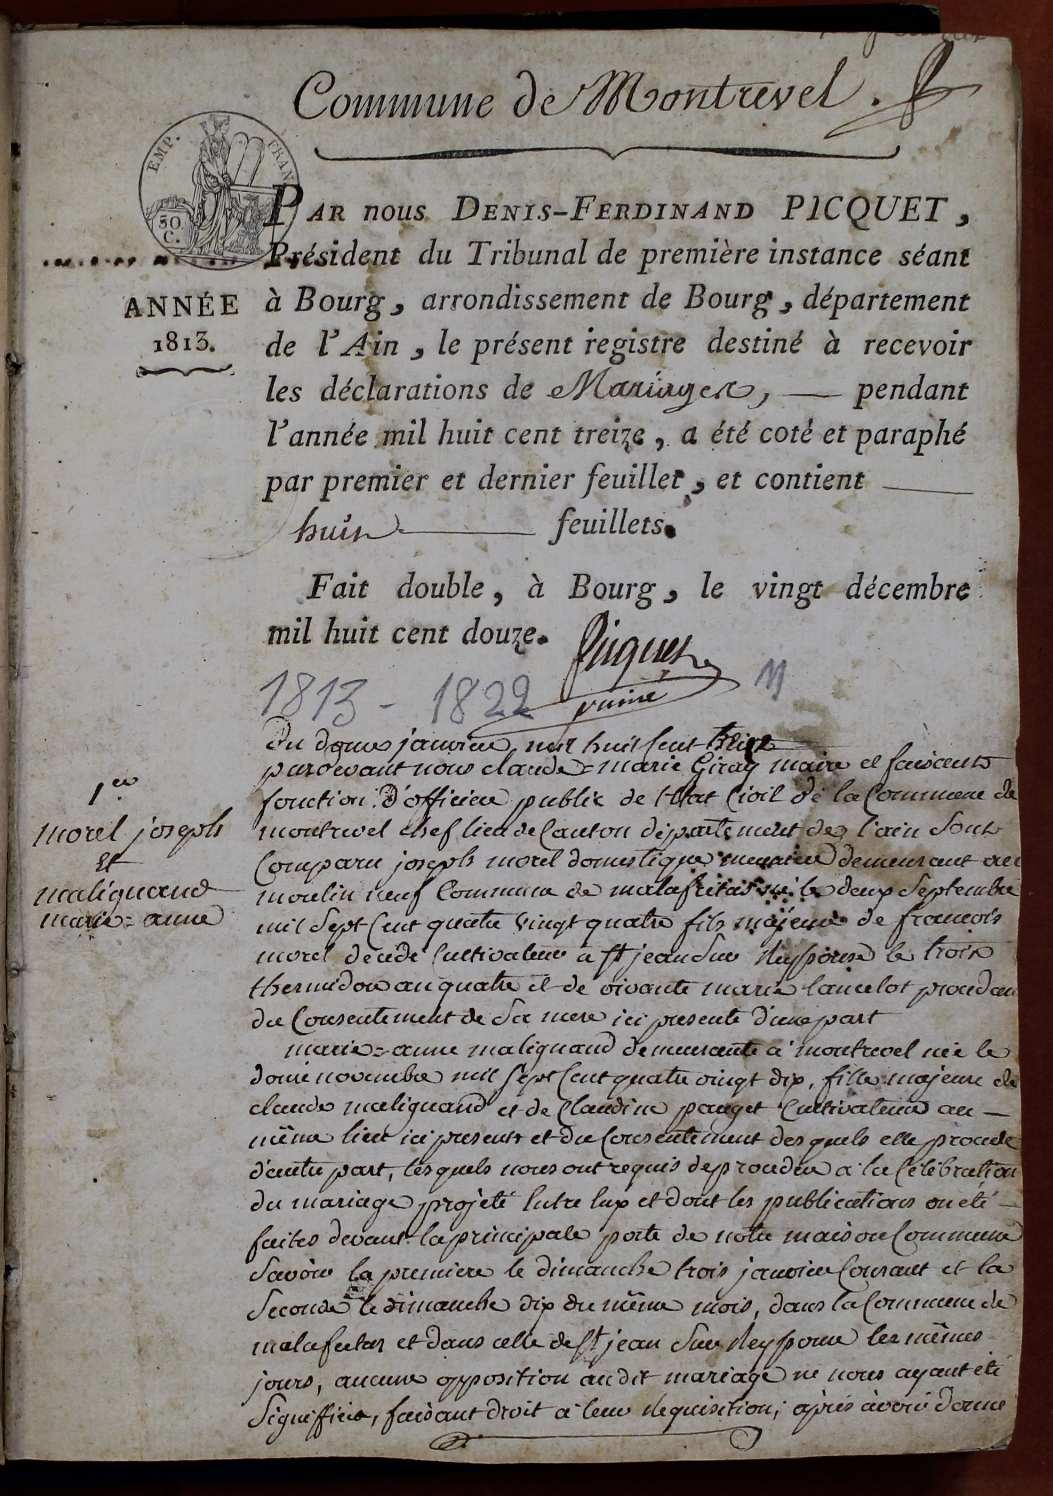 Commune de Montrevel.
EMP. FRAN
50
C.
PAR nous DENIS-FERDINAND PICQUET,
Président du Tribunal de première instance séant
ANNÉE
1813.
à Bourg, arrondissement de Bourg, département
de l'Ain, le présent registre destiné à recevoir
les déclarations de Mariages, — pendant
l'année mil huit cent treize, a été coté et paraphé
par premier et dernier feuillet, et contient —
huit — feuillets.
Fait double, à Bourg, le vingt décembre
mil huit cent douze.
Picquet
1813 - 1822
Du douze janvier mil huit Cent treize
pardevant nous claude=marie Giray maire et faisant
fonction d'officier public de l'Etat Civil de la Commune de
1er
morel joseph
Et
maliquand
marie=anne
montrevel chef lieu de Canton département de l'ain Sont
Comparu joseph morel domestique meunier demeurant au
moulin neuf Commune de malafretas né le deux Septembre
mil Sept Cent quatre vingt quatre fils majeur de francois
morel décédé Cultivateur a St jean Sur Reyssouse le trois
thermidor an quatre et de vivante marie lancelot procédant
du Consentement de Sa mere ici presente d'une part
marie=anne maliquand demeurante a montrevel née le
douze novembre mil Sept Cent quatre vingt dix, fille majeure de
claude maliquand et de Claudine pauget Cultivateurs au —
même lieu ici presents et du Consentement des quels elle procede
d'autre part, lesquels nous ont requis de procéder a la Célébration
du mariage projeté Entre Eux et dont les publications on été —
faites devant la principale porte de notre maison Commune
Savoir la premiere le dimanche trois janvier Courant et la
Seconde le dimanche dix du même mois, dans la Commune de
malafretas et dans celle de St jean Sur Reyssouse les mêmes
jours, aucune opposition audit mariage ne nous ayant été
Signiffiée, faisant droit a leur Requisition, après avoir donné